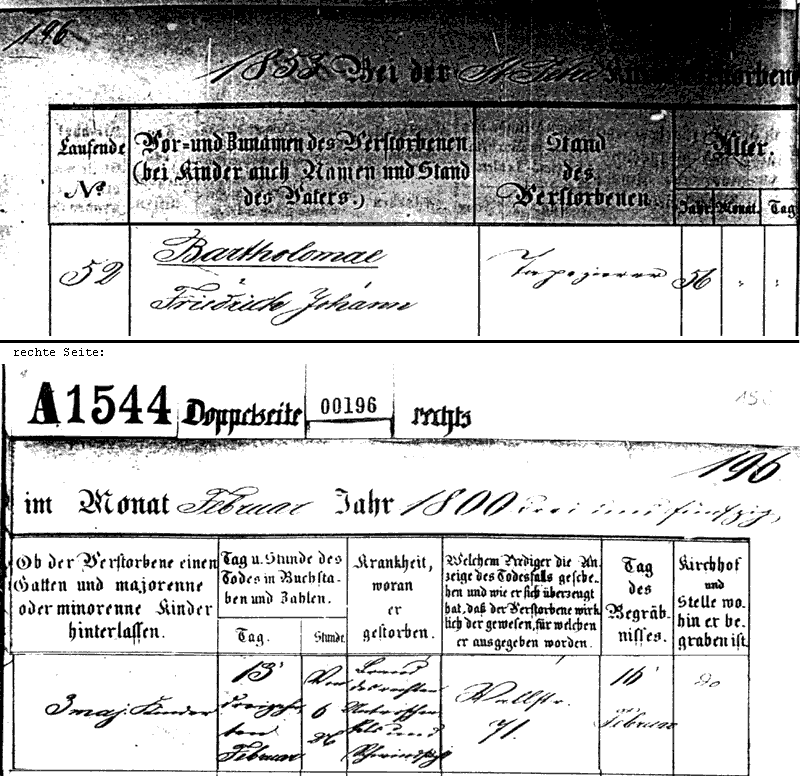 196
1853 Bei der St Petri
Laufende
Nº
Vor=und Zunamen des Verstorbenen
(bei Kinder auch Namen und Stand
des Vaters.)
Stand
des
Verstorbenen
Alter.
Jahr Monat. Tag
52
Bartholomae
Friedrich Johann
Tapezierer
56
rechte Seite:
A1544 Doppelseite 00196 rechts
196
im Monat Februar Jahr 1800 drei und fünfzig
Ob der Verstorbene einen
Gatten und majorenne
oder minorenne Kinder
hinterlassen.
Tag u. Stunde des
Todes in Buchsta-
ben und Zahlen.
Tag.
Stunde.
Krankheit,
woran
er
gestorben.
Welchem Prediger die An-
zeige des Todesfalls gesche-
hen und wie er sich überzeugt
hat, daß der Verstorbene wirk-
lich der gewesen, für welchen
er ausgegeben worden.
Tag
des
Begräb-
nisses.
Kirchhof
und
Stelle wo-
hin er be-
graben ist.
3 maj. Kinder
13
dreizehn
ten
Februar
6
Brand
des rechten
Unterschen-
kels und
Wallstr.
71.
16
Februar
do